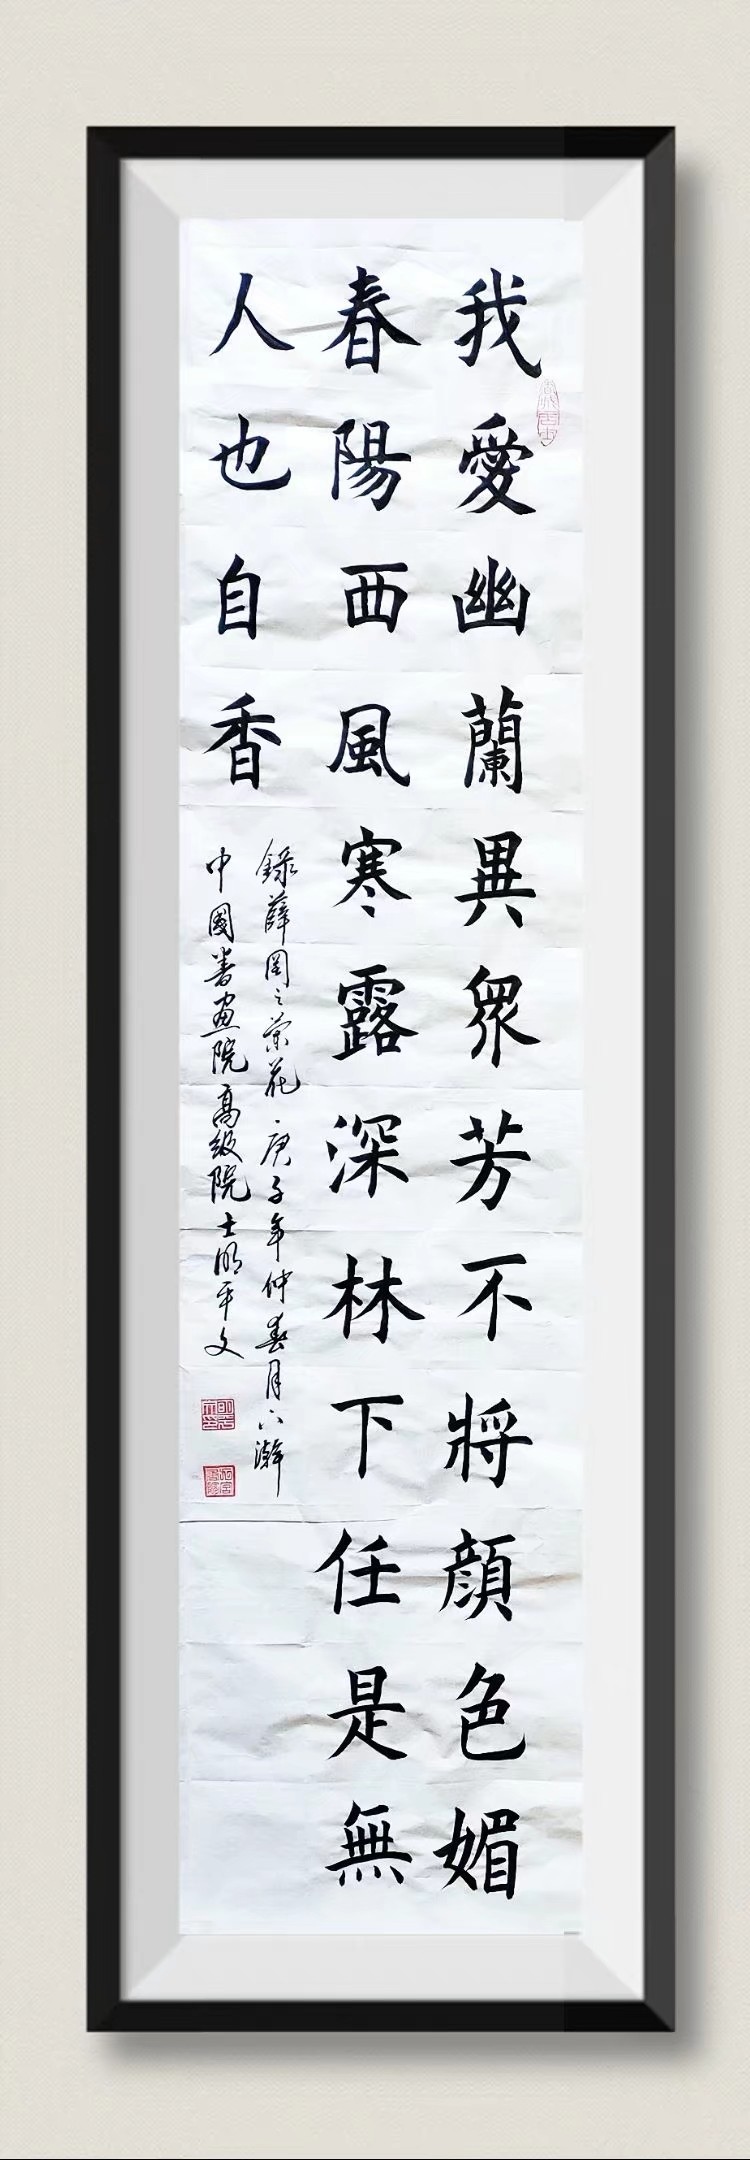 我愛幽蘭異衆芳不將顏色媚
春陽西風寒露深林下任是無
人也自香
錄薛岡之蘭花庚子年仲春月下澣
中國書画院高級院士明平文